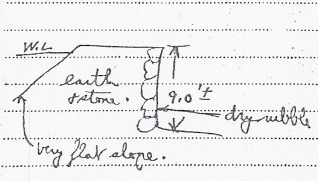 W.L
earth
& stone.
9.0'±
dry rubble
very flat slope.